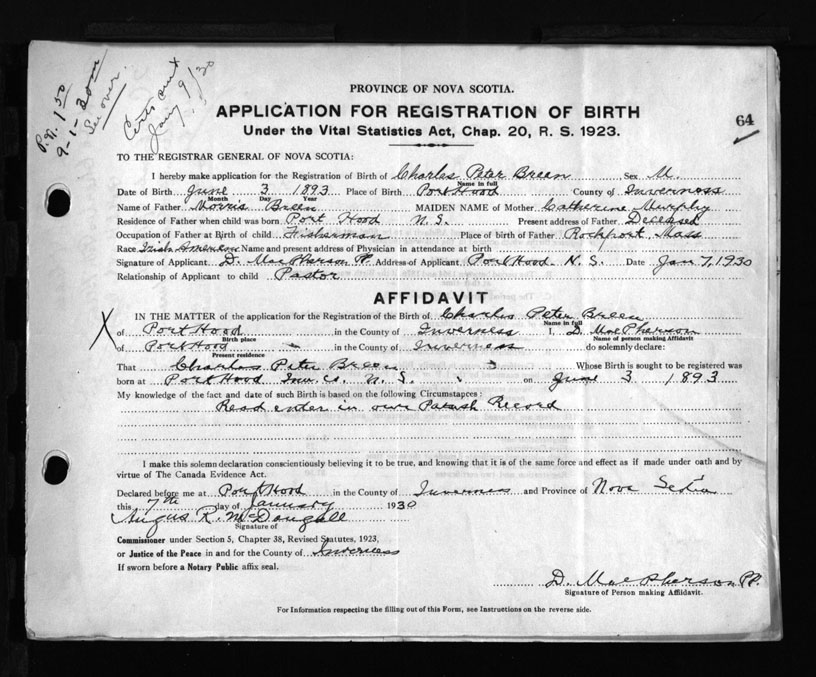 P.N. 1.50
9-1-30
See over.
Certs
Jany 9/30
PROVINCE OF NOVA SCOTIA.
APPLICATION FOR REGISTRATION OF BIRTH
64
Under the Vital Statistics Act, Chap. 20, R. S. 1923.
TO THE REGISTRAR GENERAL OF NOVA SCOTIA:
I hereby make application for the Registration of Birth of Charles Peter Breen Sex M.
Name in full
Date of Birth June 3 1893 Place of Birth Port Hood County of Inverness
Month Day Year
Name of Father Morris Breen MAIDEN NAME of Mother Catherine Murphy
Residence of Father when child was born Port Hood N. S. Present address of Father Deceased
Occupation of Father at Birth of child Fisherman Place of birth of Father Rockport, Mass
Race Irish American Name and present address of Physician in attendance at birth
Signature of Applicant D. MacPherson PP. Address of Applicant Port Hood N. S. Date Jan 7, 1930
Relationship of Applicant to child Pastor
AFFIDAVIT
IN THE MATTER of the application for the Registration of the Birth of Charles Peter Breen
Name in full
X of Port Hood in the County of Inverness I, D. MacPherson
Birth place Name of person making Affidavit
of Port Hood in the County of Inverness do solemnly declare:
Present residence
That Charles Peter Breen Whose Birth is sought to be registered was
born at Port Hood Inv. Co. N. S. on June 3 1893
My knowledge of the fact and date of such Birth is based on the following Circumstances:
Read in our Parish Record
I make this solemn declaration conscientiously believing it to be true, and knowing that it is of the same force and effect as if made under oath and by
virtue of The Canada Evidence Act.
Declared before me at Port Hood in the County of Inverness and Province of Nova Scotia
this 7th day of January 1930
Angus R. McDougall
Signature of
Commissioner under Section 5, Chapter 38, Revised Statutes, 1923,
or Justice of the Peace in and for the County of Inverness
If sworn before a Notary Public affix seal.
D. MacPherson PP.
Signature of Person making Affidavit.
For Information respecting the filling out of this Form, see Instructions on the reverse side.